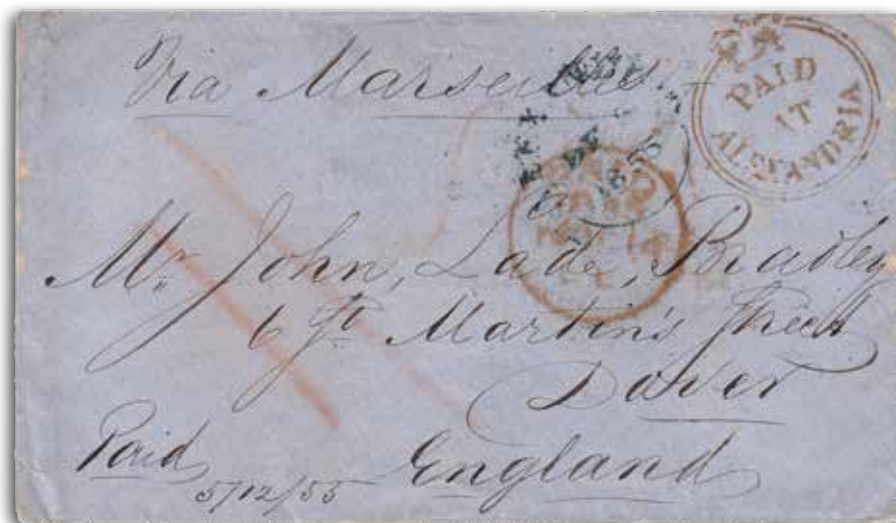 Via Marseilles
PAID
AT
ALEXANDRIA
PAID
1855
Mr. John, Lade, Bradley
6 St. Martin's Street
Dover
England
Paid
5/12/55